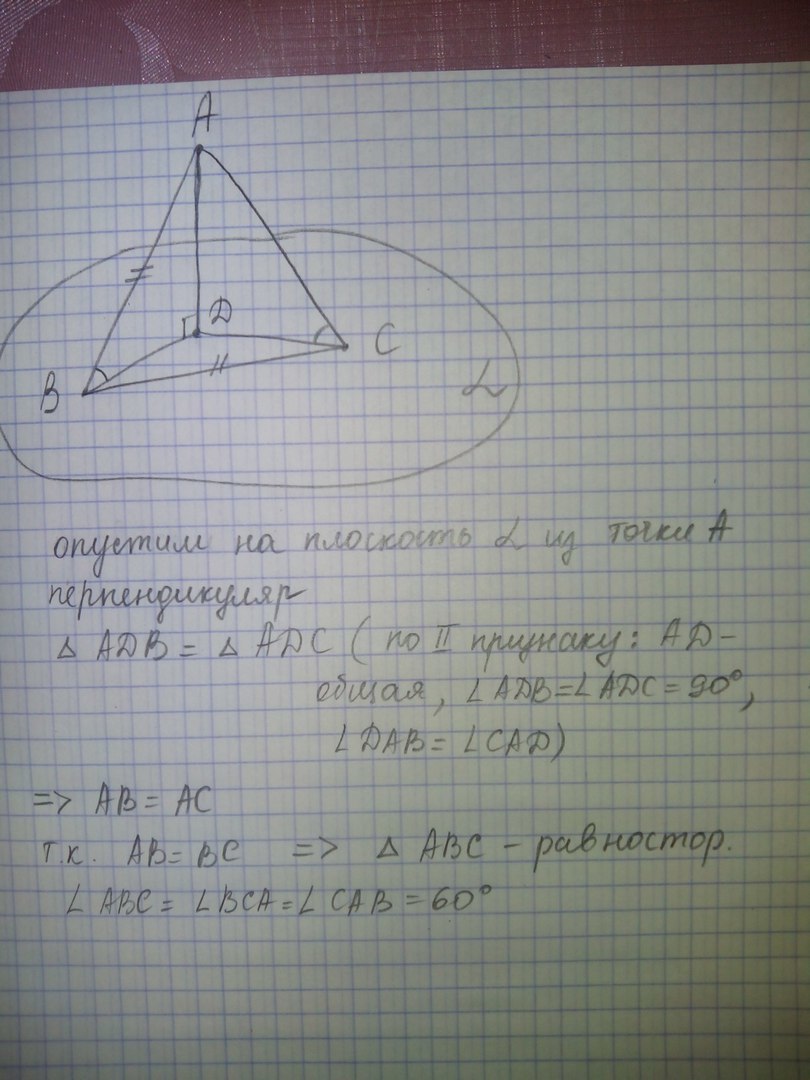 A
D
C
B
α
опустим на плоскость α из точки А
перпендикуляр
△ ADB = △ ADC ( по II признаку: AD-
общая, ∠ADB=∠ADC = 90°,
∠DAB = ∠CAD)
=> AB = AC
т.к. AB = BC => △ ABC - равностор.
∠ABC = ∠BCA = ∠CAB = 60°